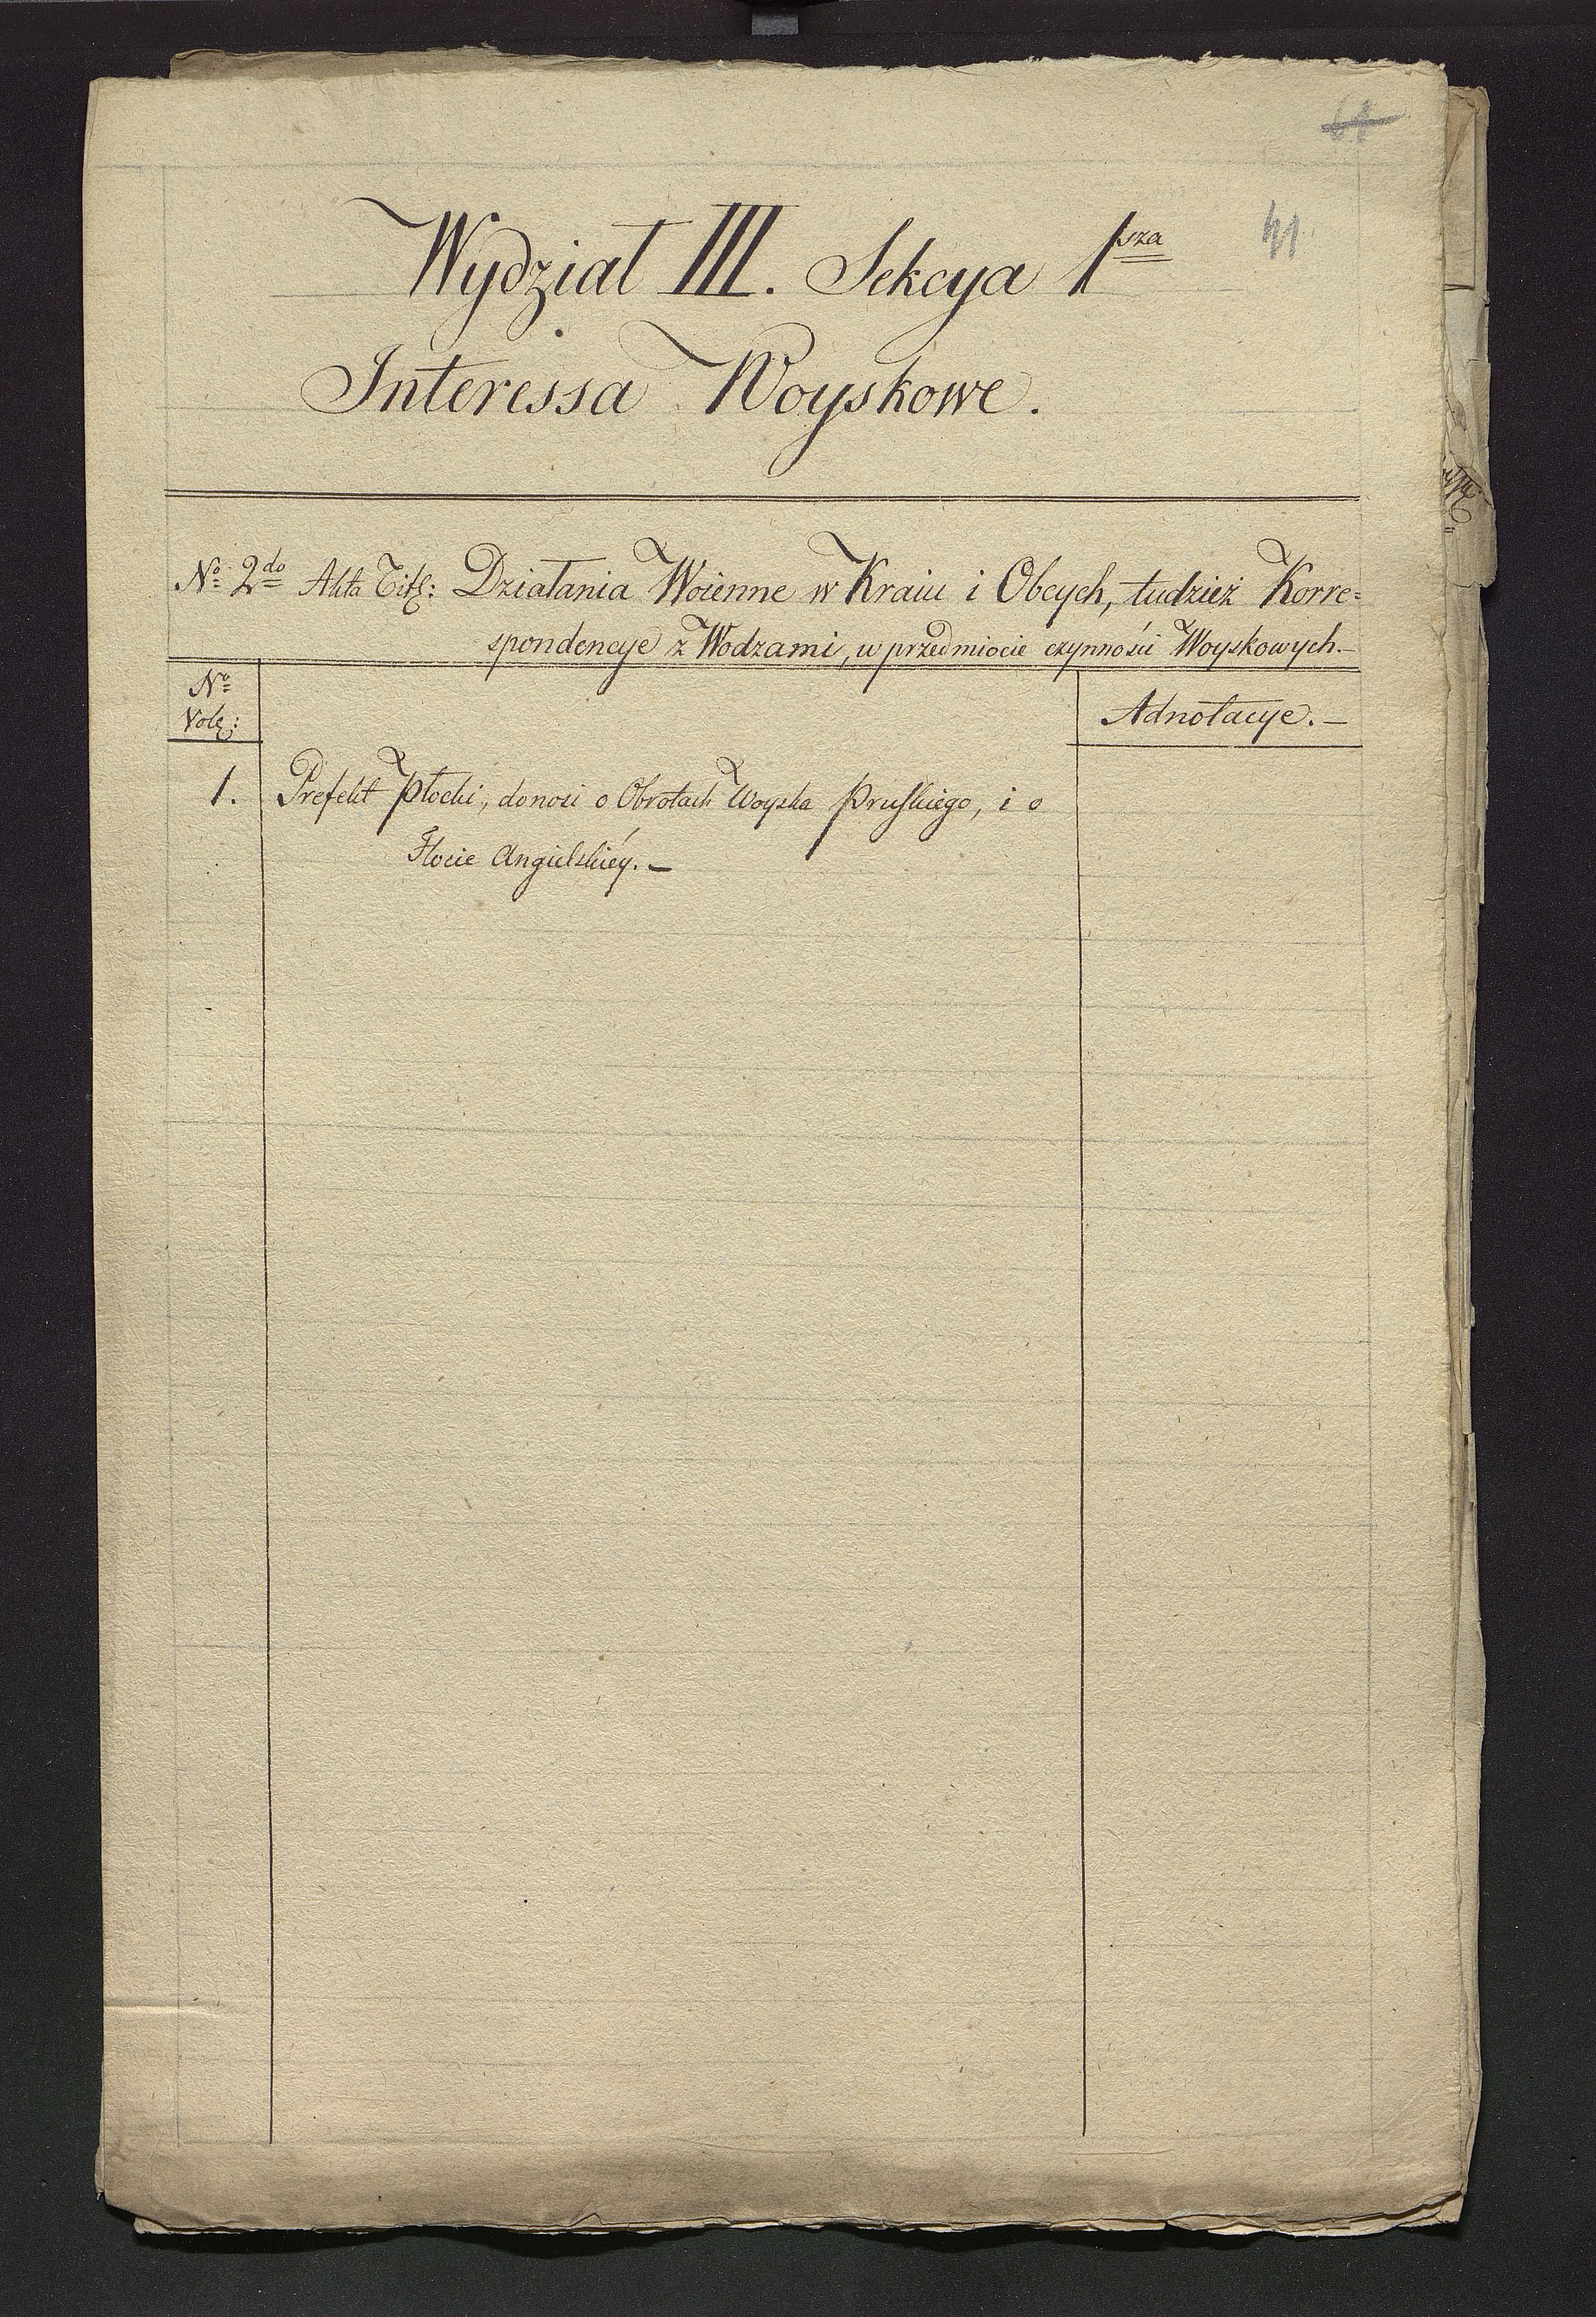 61
41
Wydział III. Sekcya 1sza
Interessa Woyskowe.
No 2do Akta Tit: Działania Woienne w Kraiu i Obcych, tudzież Korre=
spondencye z Wodzami, w przedmiocie czynności Woyskowych.—
No
Vol:
Adnotacye.—
1. Prefekt Płocki, donosi o Obrotach Woyska Pruskiego, i o
Flocie Angielskiéy.—